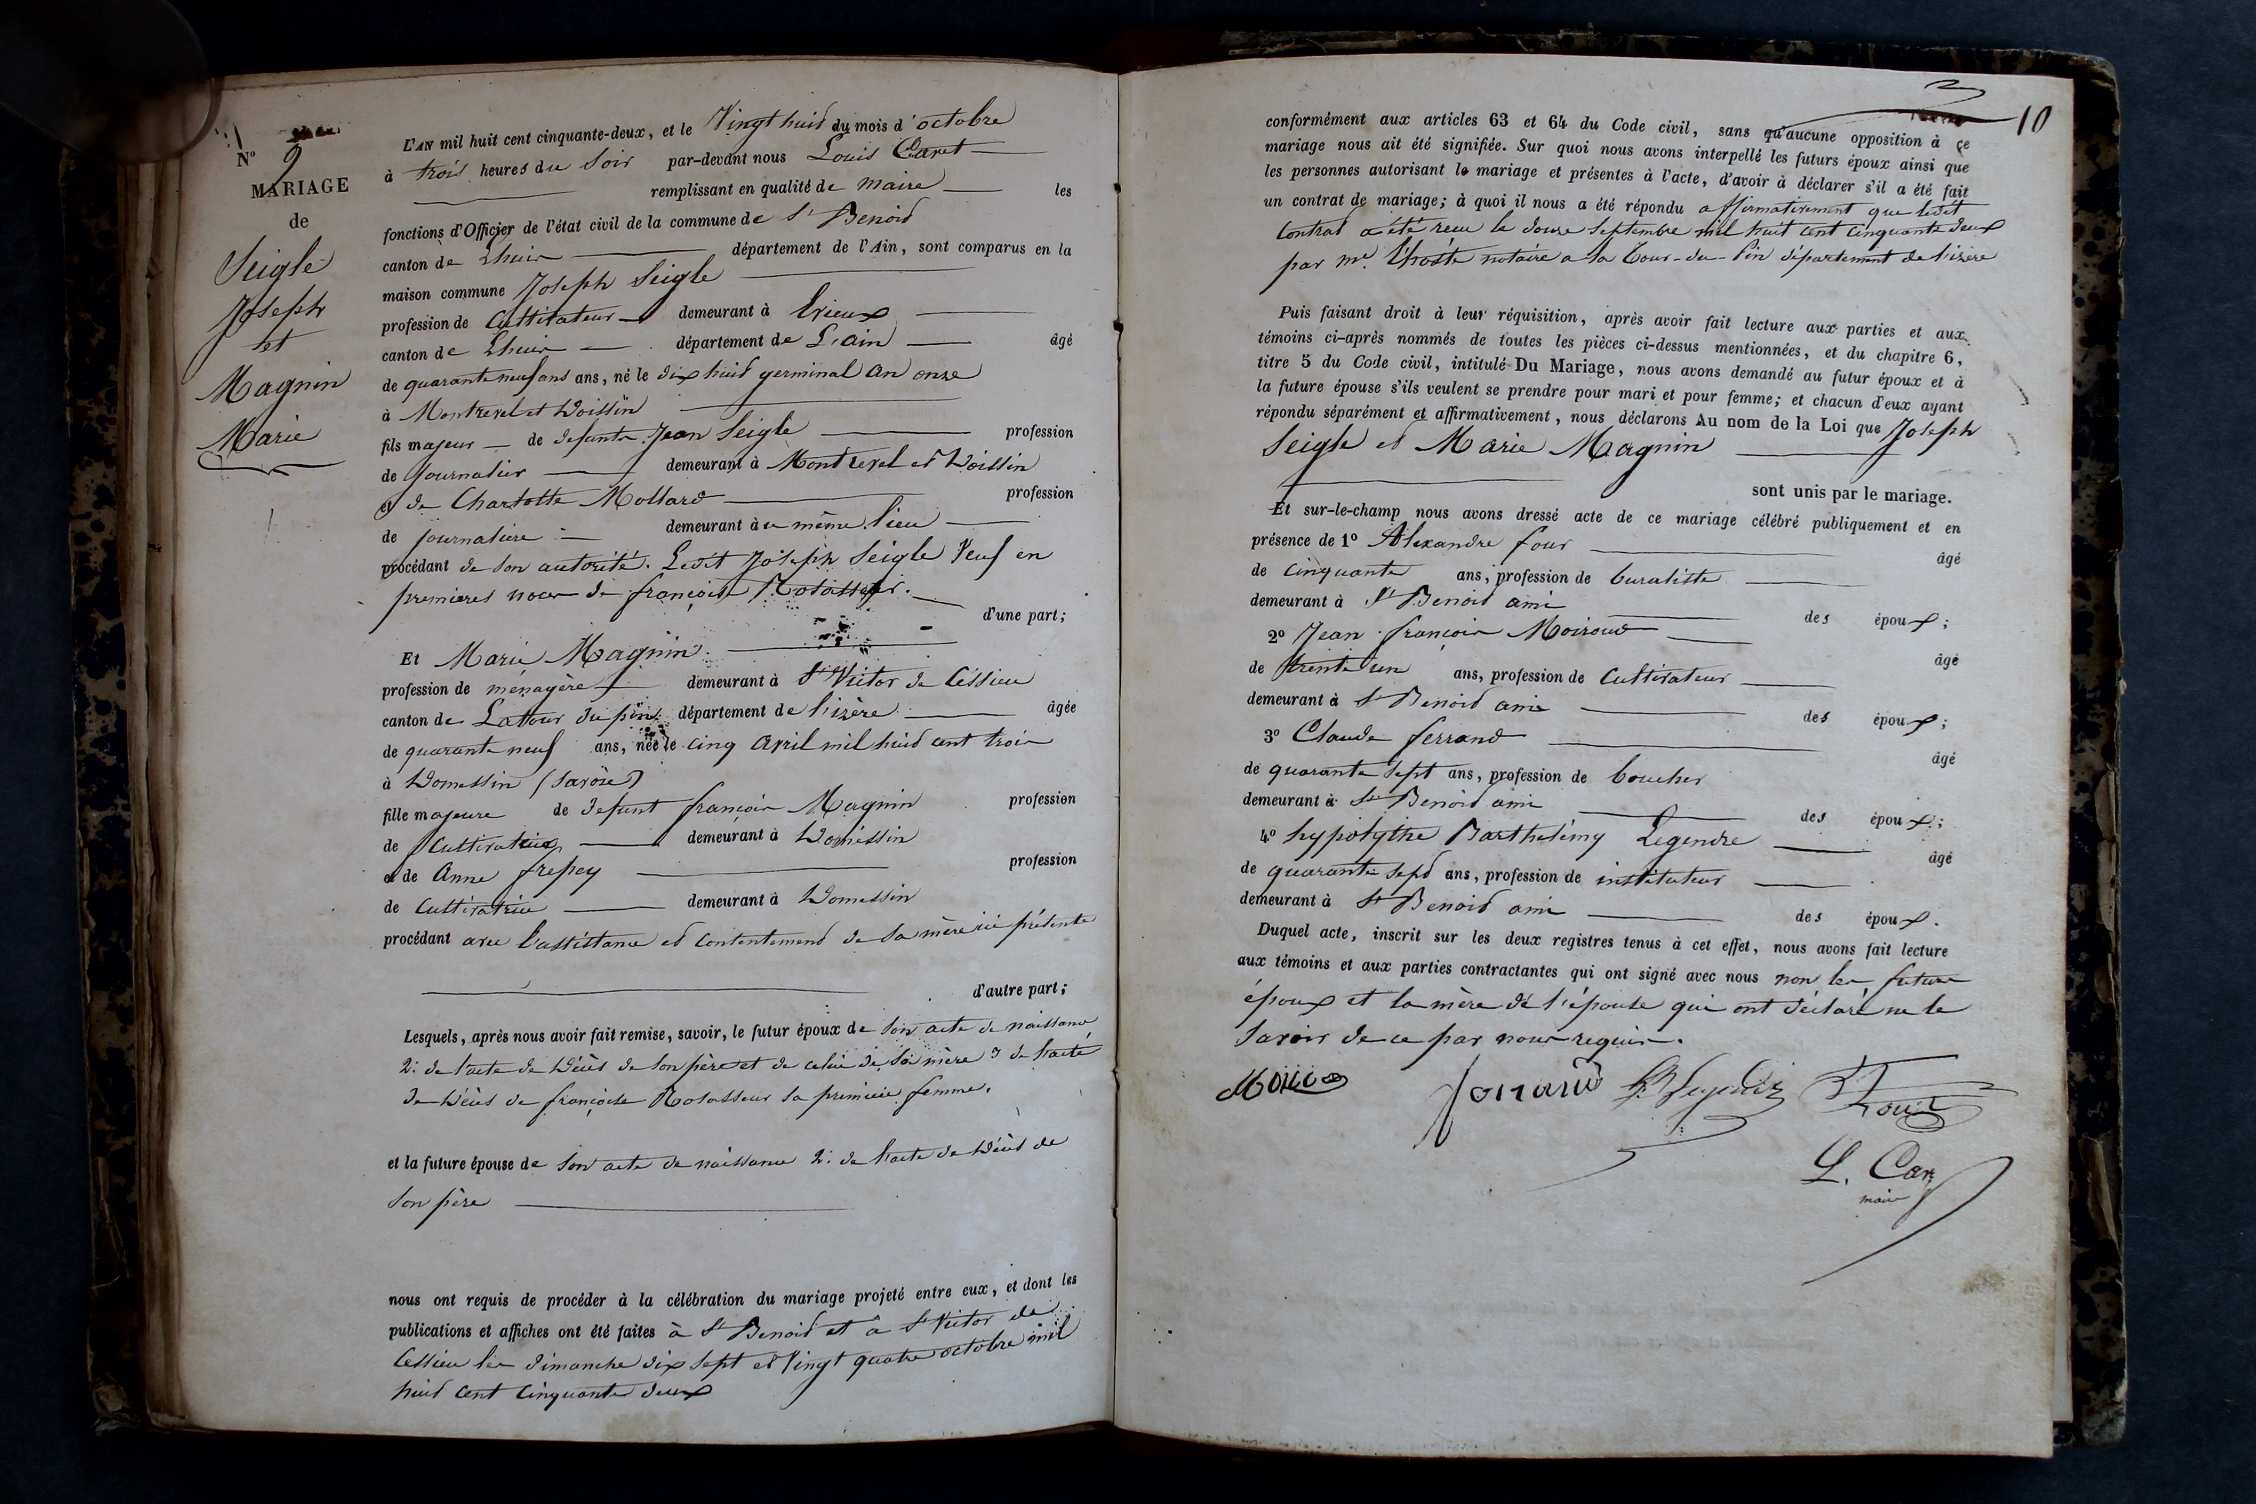 N° 9
MARIAGE
de
Seigle
Joseph
et
Magnin
Marie
L'AN mil huit cent cinquante-deux, et le Vingt huit du mois d'octobre
à trois heures du Soir par-devant nous Louis Caret
remplissant en qualité de maire les
fonctions d'Officier de l'état civil de la commune de St Benoid
canton de Lhuis département de l'Ain, sont comparus en la
maison commune Joseph Seigle
profession de Cultivateur demeurant à Brieux
canton de Lhuis département de L'ain âgé
de quarante neuf ans ans, né le dix huit germinal an onze
à Montrevel et Doissin
fils majeur de defunts Jean Seigle profession
de Journalier demeurant à Montrevel et Doissin
et de Charlotte Mollard profession
de journaliere demeurant à u même lieu
procédant de son autorité. Ledit Joseph Seigle Veuf en
premieres noces de françoise
d'une part;
Et Marie Magnin
profession de ménagère demeurant à St Victor de Céssieu
canton de Latour du pin département de l'isère âgée
de quarante neuf ans, née le cinq Avril mil huit cent trois
à Domessin (Savoie)
fille majeure de defunt françois Magnin profession
de Cultivatrice demeurant à Doméssin
et de Anne frepey profession
de Cultivatrice demeurant à Domessin
procédant avec l'assistance et contentement de sa mère ici présente
d'autre part;
Lesquels, après nous avoir fait remise, savoir, le futur époux de son acte de naissance
2° de l'acte de Décès de son père et de celui de sa mère 3 de l'acte
de Décès de françoise Rolasseur sa premiere femme.
et la future épouse de son acte de naissance 2° de l'acte de Décès de
son père
nous ont requis de procéder à la célébration du mariage projeté entre eux, et dont les
publications et affiches ont été faites à St Benoid et à St Victor de
Cessieu les dimanche dix sept et Vingt quatre octobre mil
huit cent cinquante deux
10
conformément aux articles 63 et 64 du Code civil, sans qu'aucune opposition à ce
mariage nous ait été signifiée. Sur quoi nous avons interpellé les futurs époux ainsi que
les personnes autorisant le mariage et présentes à l'acte, d'avoir à déclarer s'il a été fait
un contrat de mariage; à quoi il nous a été répondu affirmativement que ledit
Contrat a été recu le douze Septembre mil huit cent cinquante deux
par me. Lhoste notaire a la Tour-du-Pin département de l'isère
Puis faisant droit à leur réquisition, après avoir fait lecture aux parties et aux
témoins ci-après nommés de toutes les pièces ci-dessus mentionnées, et du chapitre 6,
titre 5 du Code civil, intitulé Du Mariage, nous avons demandé au futur époux et à
la future épouse s'ils veulent se prendre pour mari et pour femme; et chacun d'eux ayant
répondu séparément et affirmativement, nous déclarons Au nom de la Loi que Joseph
Seigle et Marie Magnin
sont unis par le mariage.
Et sur-le-champ nous avons dressé acte de ce mariage célébré publiquement et en
présence de 1° Alexandre four âgé
de cinquante ans, profession de buraliste
demeurant à St Benoid ami des époux;
2° Jean françois Moiroud âgé
de trente un ans, profession de Cultivateur
demeurant à St Benoid ami des époux;
3° Claude ferrand âgé
de quarante sept ans, profession de boucher
demeurant à St Benoid ami des époux;
4° hypolythe Barthelémy Legendre âgé
de quarante sept ans, profession de instituteur
demeurant à St Benoid ami des époux.
Duquel acte, inscrit sur les deux registres tenus à cet effet, nous avons fait lecture
aux témoins et aux parties contractantes qui ont signé avec nous non les futurs
époux et la mère de l'épouse qui ont déclaré ne le
Savoir de ce par nous requis.
L. Car
maire